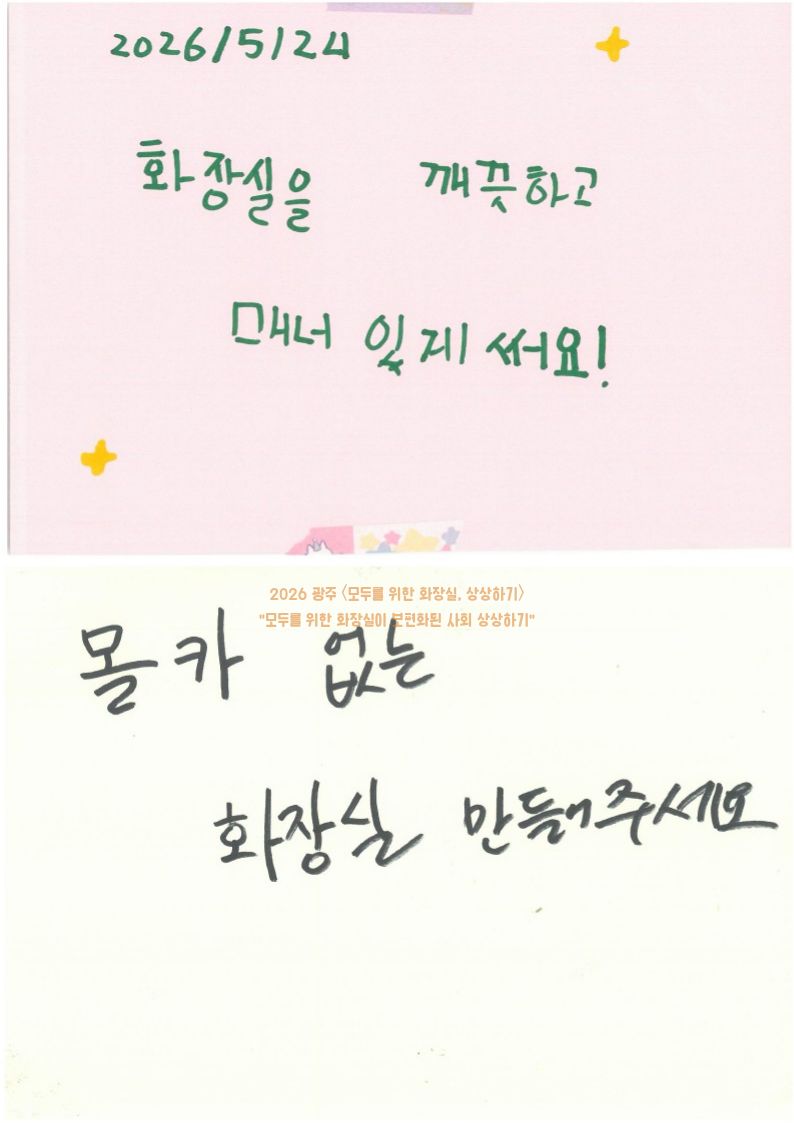 2026/5/24
화장실을 깨끗하고
매너 있게 써요!
2026 광주 <모두를 위한 화장실, 상상하기>
"모두를 위한 화장실이 보편화된 사회 상상하기"
몰카 없는
화장실 만들어주세요